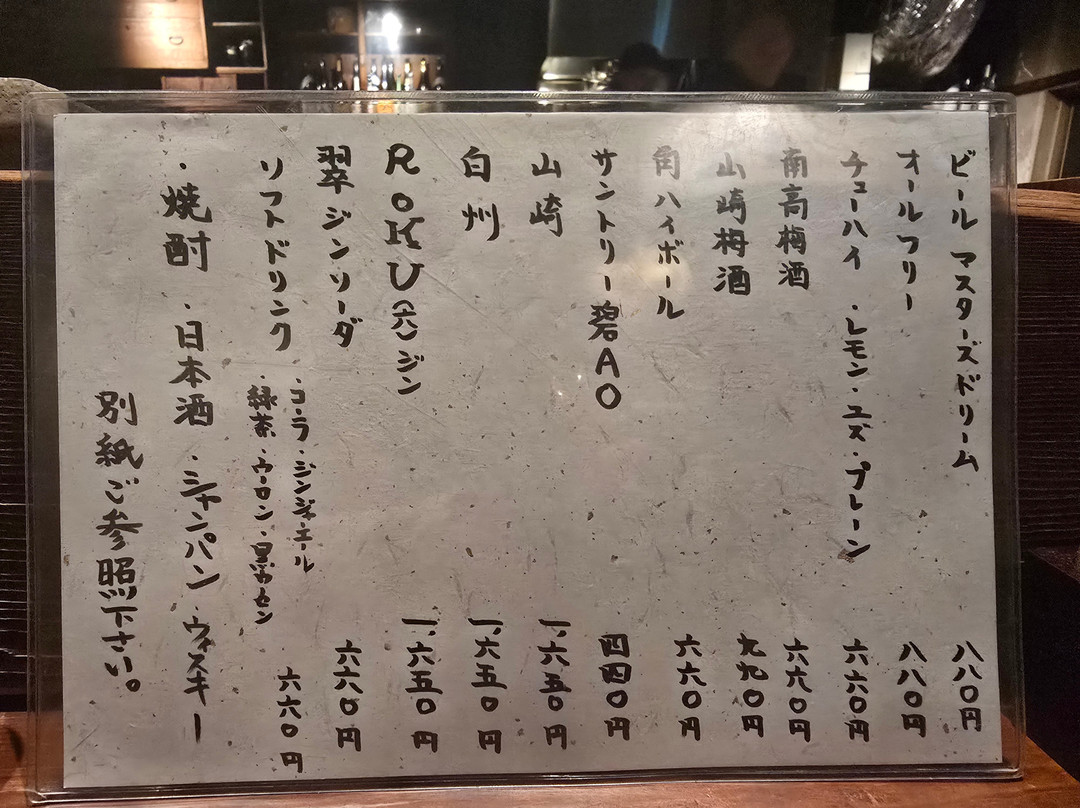 ビール マスターズドリーム 八八〇円
オールフリー 八八〇円
チューハイ ・レモン・ユズ・プレーン 六六〇円
南高梅酒 六六〇円
山崎梅酒 九九〇円
角ハイボール 六六〇円
サントリー碧AO 四四〇円
山崎 一、六五〇円
白州 一、六五〇円
ROKU(六)ジン 一、六五〇円
翠ジンソーダ 六六〇円
ソフトドリンク ・コーラ・ジンジャエール 六六〇円
・緑茶・ウーロン・黒カセン
・焼酎 ・日本酒 ・シャンパン ・ウィスキー
別紙ご参照下さい。